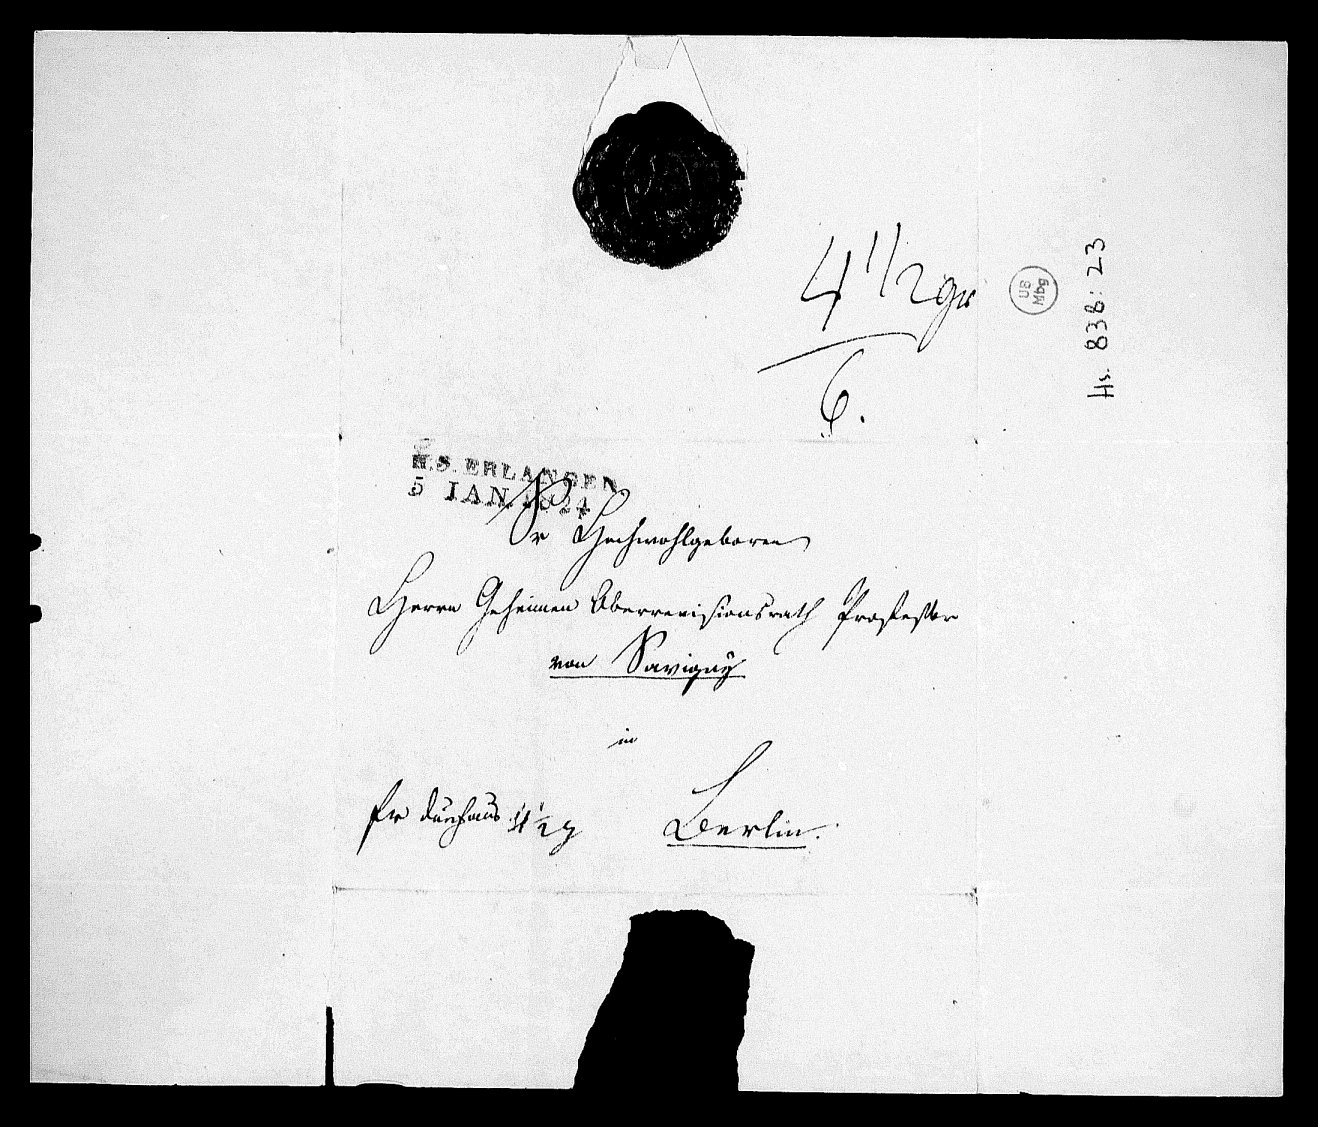 4 1/2 gr
6.
UB
Mbg
Hs. 838: 23
R.S. ERLANGEN
5 IAN. 1824
Sr Hochwohlgeboren
Herrn Geheimen Oberrevisionsrath Professor
von Savigny
in
fr durchaus 4 1/2 g
Berlin.